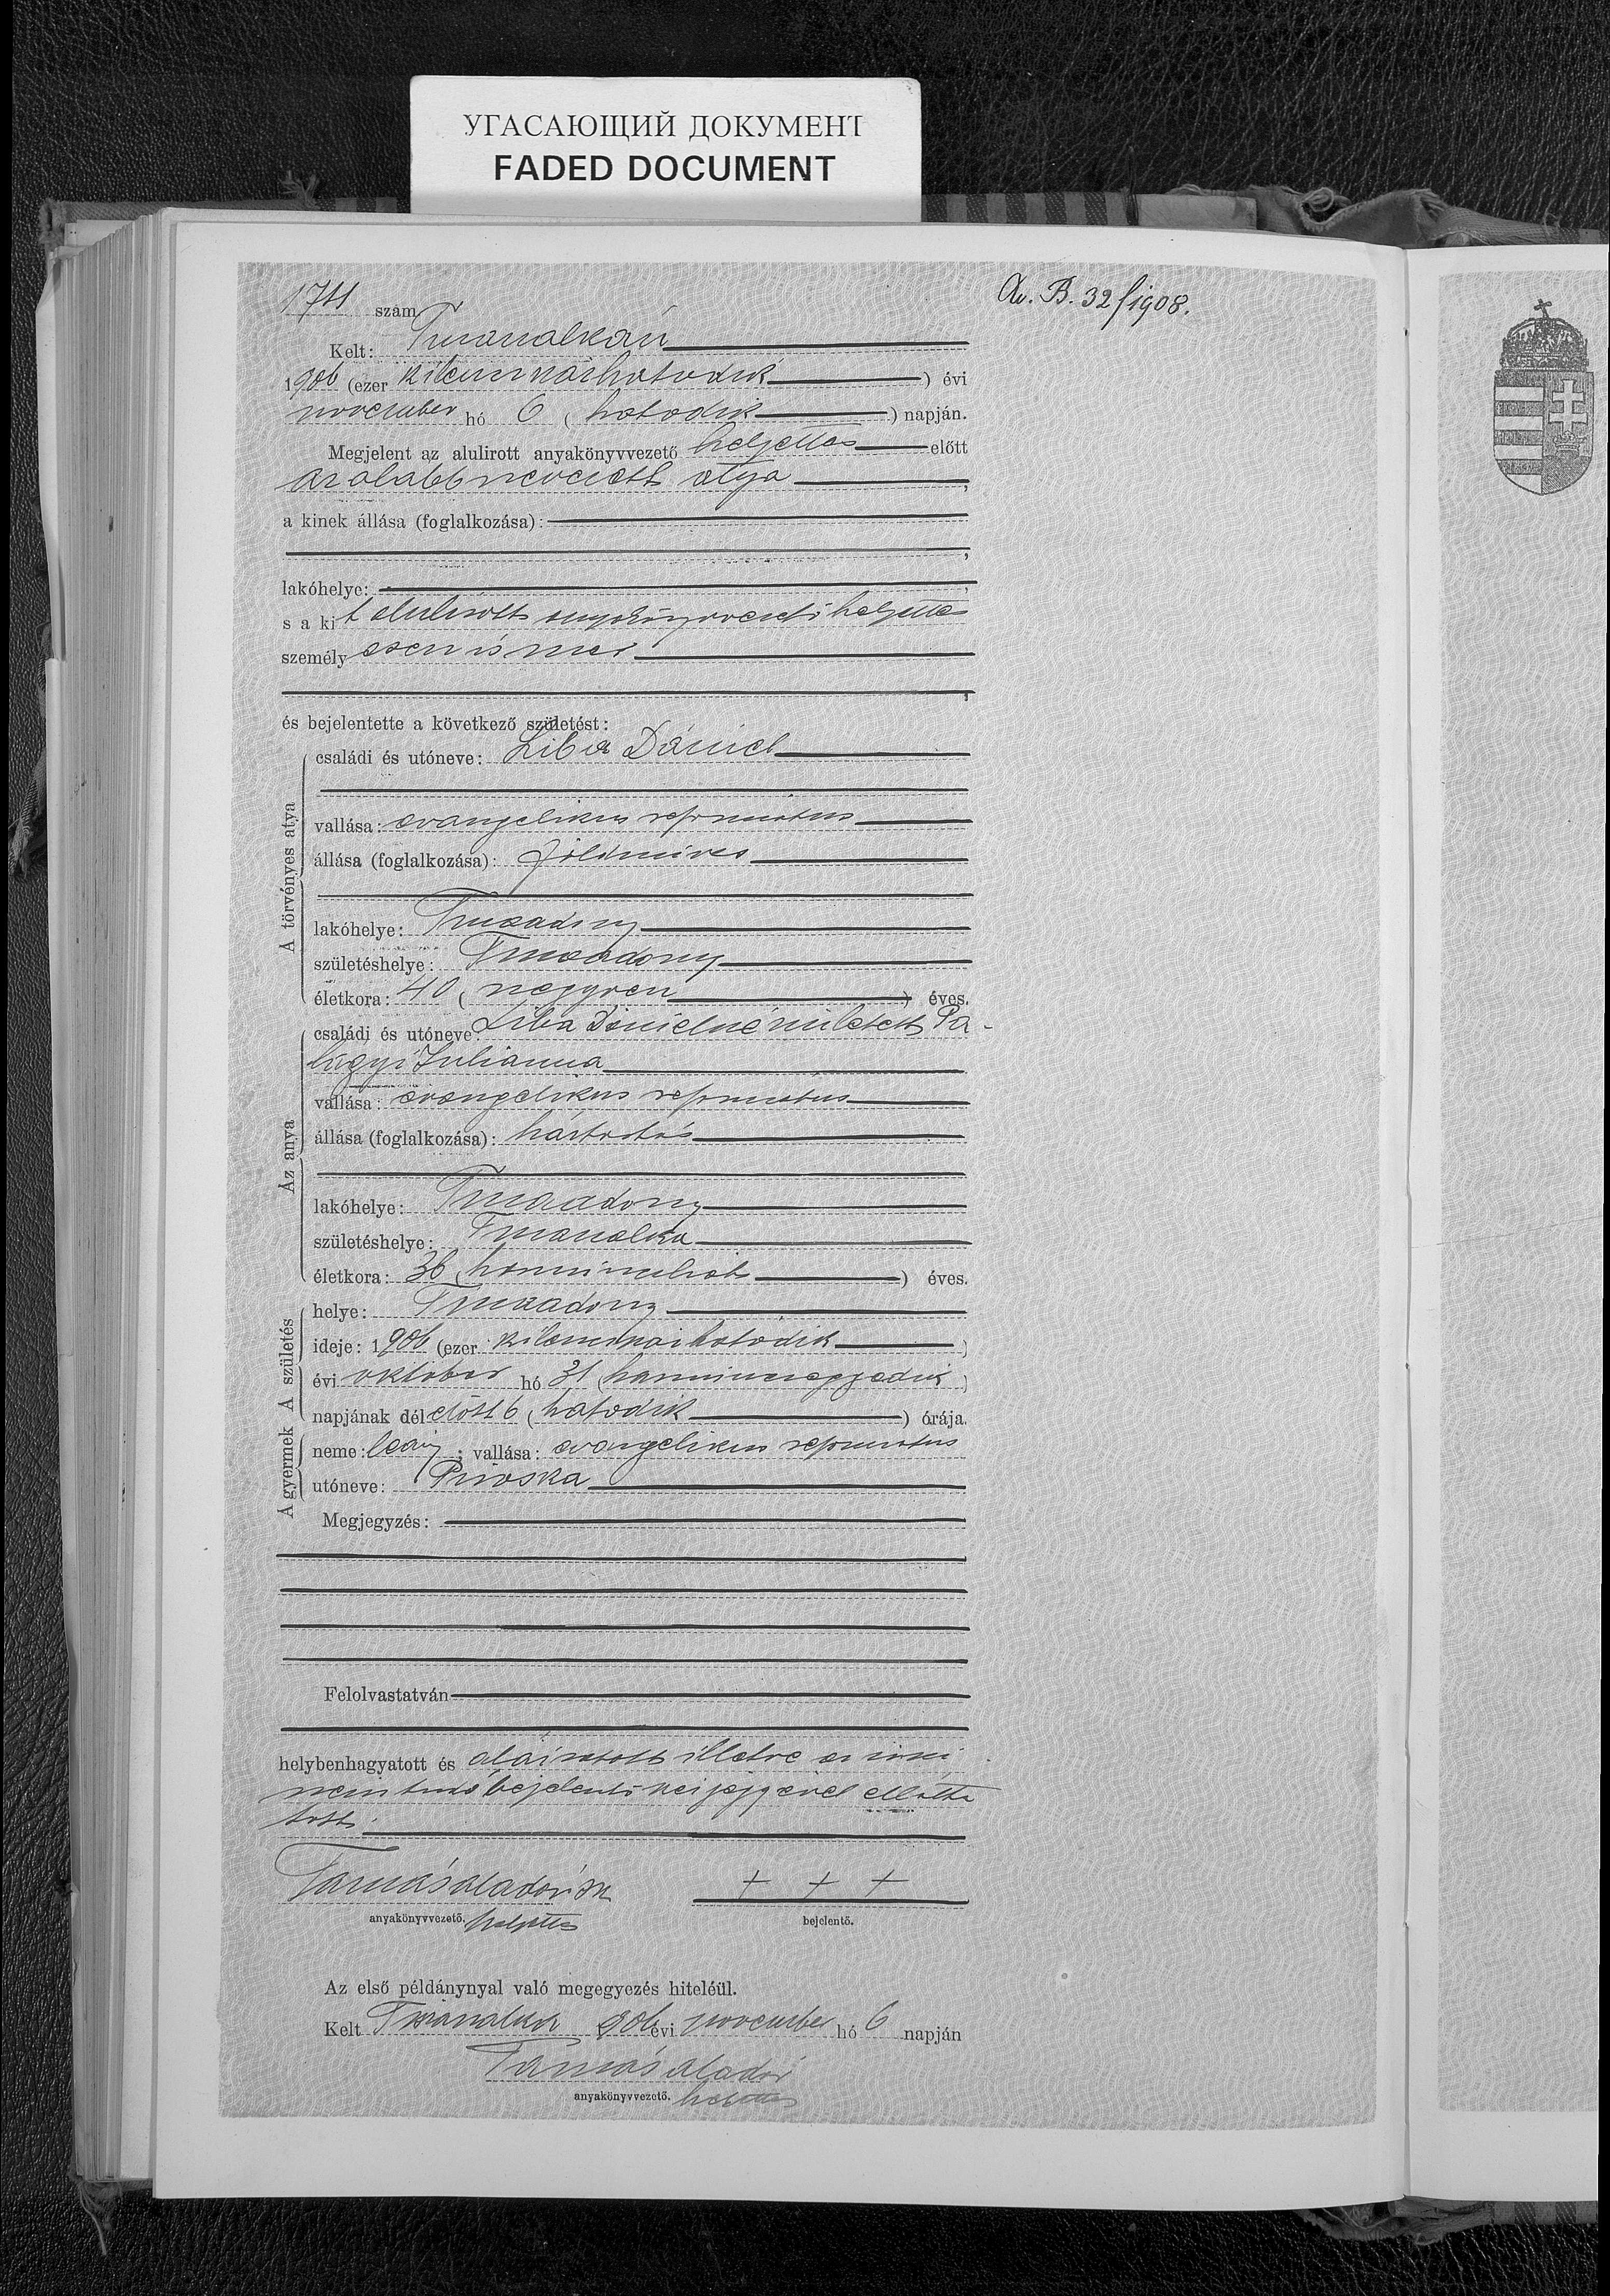 УГАСАЮЩИЙ ДОКУМЕНТ
FADED DOCUMENT
Av. B. 32/1908.
szám
Kelt:
1906 (ezer kilenczszázhatodik) évi
november hó 6 (hatodik) napján.
Megjelent az alulirott anyakönyvvezető helyettes előtt
az alább nevezett atya,
a kinek állása (foglalkozása):
lakóhelye:
s a kit alulirott anyakönyvvezető helyettes
személyesen ismer
és bejelentette a következő születést:
A törvényes atya
családi és utóneve: Liba Dániel
vallása: evangelikus református
állása (foglalkozása): földmives
lakóhelye: Tiszaadony
születéshelye: Tiszaadony
életkora: 40 (negyven) éves.
Az anya
családi és utóneve: Liba Dánielné született Pa-
lágyi Julianna
vallása: evangelikus református
állása (foglalkozása): háztartás
lakóhelye: Tiszaadony
születéshelye:
életkora: 36 (harminczhat) éves.
A gyermek A születés
helye: Tiszaadony
ideje: 1906 (ezer kilenczszázhatodik)
évi október hó 31 (harminczegyedik)
napjának délelőtt 6 (hatodik) órája.
neme: leány; vallása: evangelikus református
utóneve: Piroska
Megjegyzés:
Felolvastatván
helybenhagyatott és aláiratott illetve az irni
nem tudó bejelentő kézjegyével ellátta
tott.
Tamás Aladár sk + + +
anyakönyvvezető. helyettes bejelentő.
Az első példánynyal való megegyezés hiteléül.
Kelt 906 évi november hó 6 napján
Tamás Aladár
anyakönyvvezető. helyettes